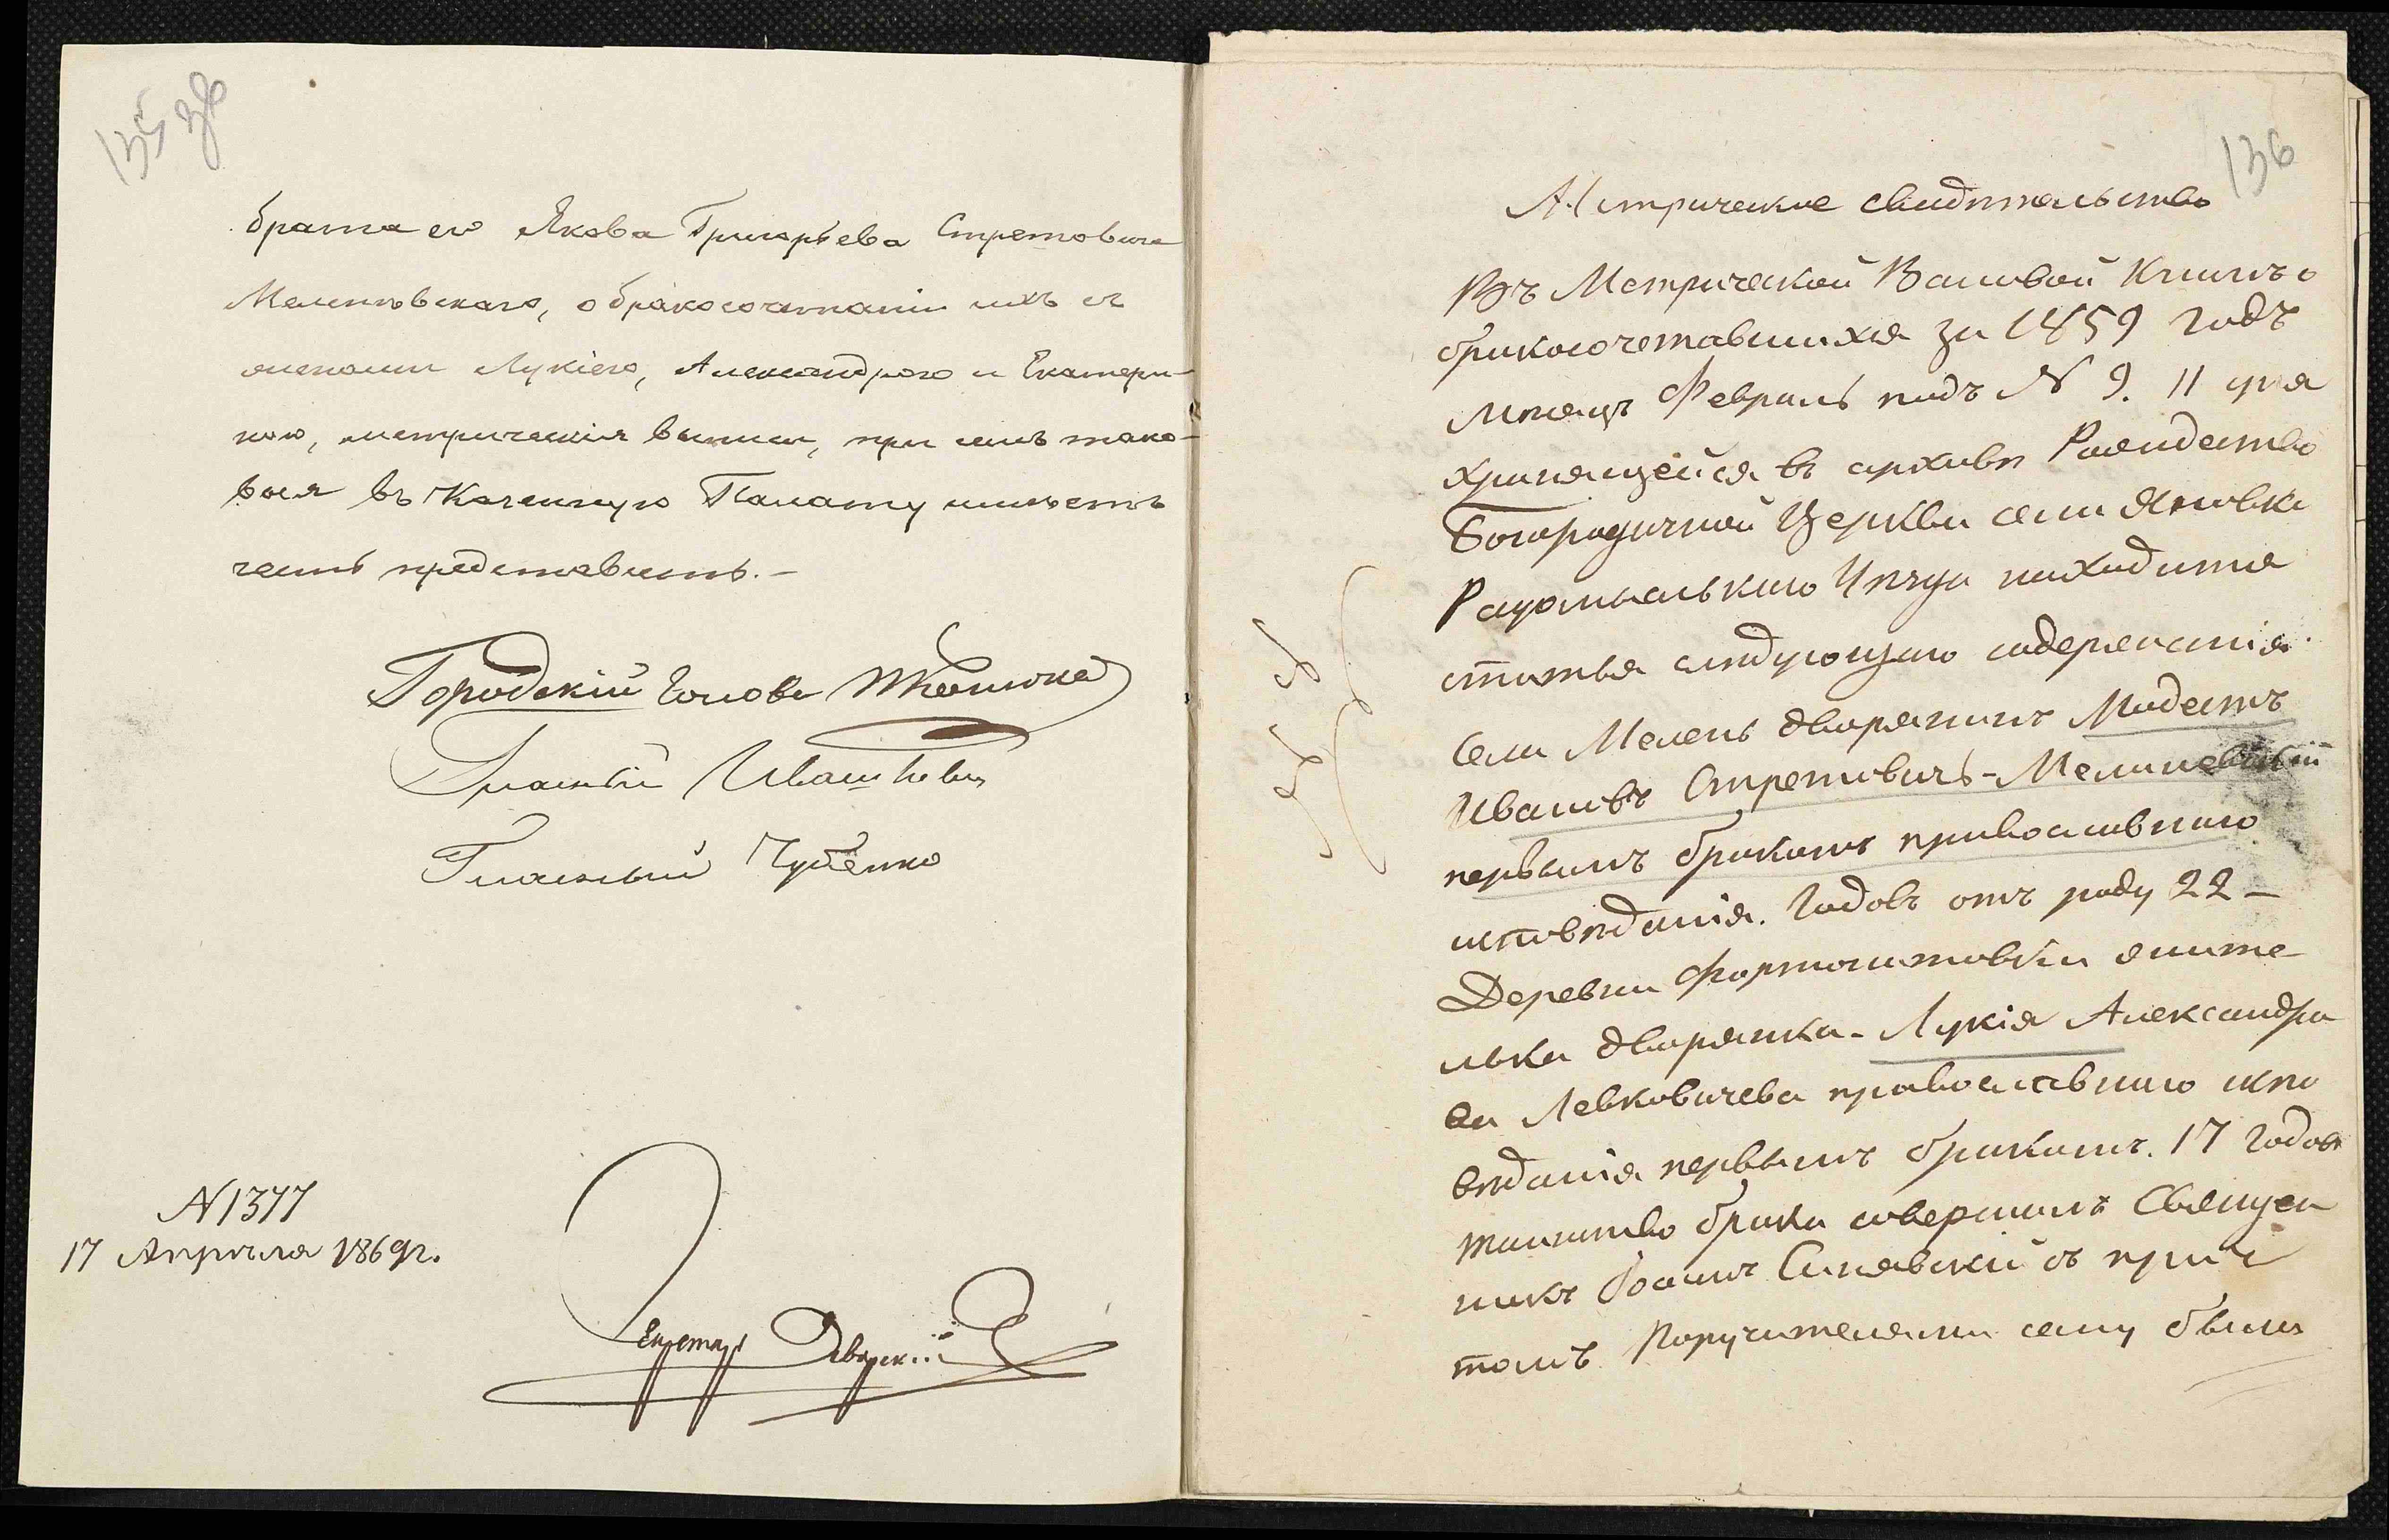 135 зв
брата его Якова Григорьева Стретовича
Меленевскаго, о бракосочетаніи ихъ съ
женами Лукіею, Александрою и Екатери-
ною, метрическія выписи, при семъ тако-
выя въ Казенную Палату имѣетъ
честь представить.-
Городскій Голова
Гласный Ивашкевич
Гласный Чубенко
N 1377
17 Апрѣля 1869г.
Секретарь
136
Метрическое свидѣтельство
Въ Метрической Вѣновой Книгѣ о
бракосочетавшихся за 1859 годъ
мѣсяцъ Февраль подъ N 9. 11 дня
хранящейся въ архивѣ Рождество
Богородичной Церкви села Яновки
Радомысльскаго Уѣзда находится
статья слѣдующаго содержанія
Села Мелень дворянинъ Модестъ
Ивановъ Стретовичъ-Мелиневскій
первымъ бракомъ православнаго
исповѣданія. Годовъ отъ роду 22-
Деревни жите
лька дворянка- Лукія Александро
ва Левковичева православнаго испо
вѣданія первымъ бракомъ. 17 годовъ
таинство брака совершилъ Священ
никъ Іоаннъ Синявскій съ прич
томъ Поручителями сему были